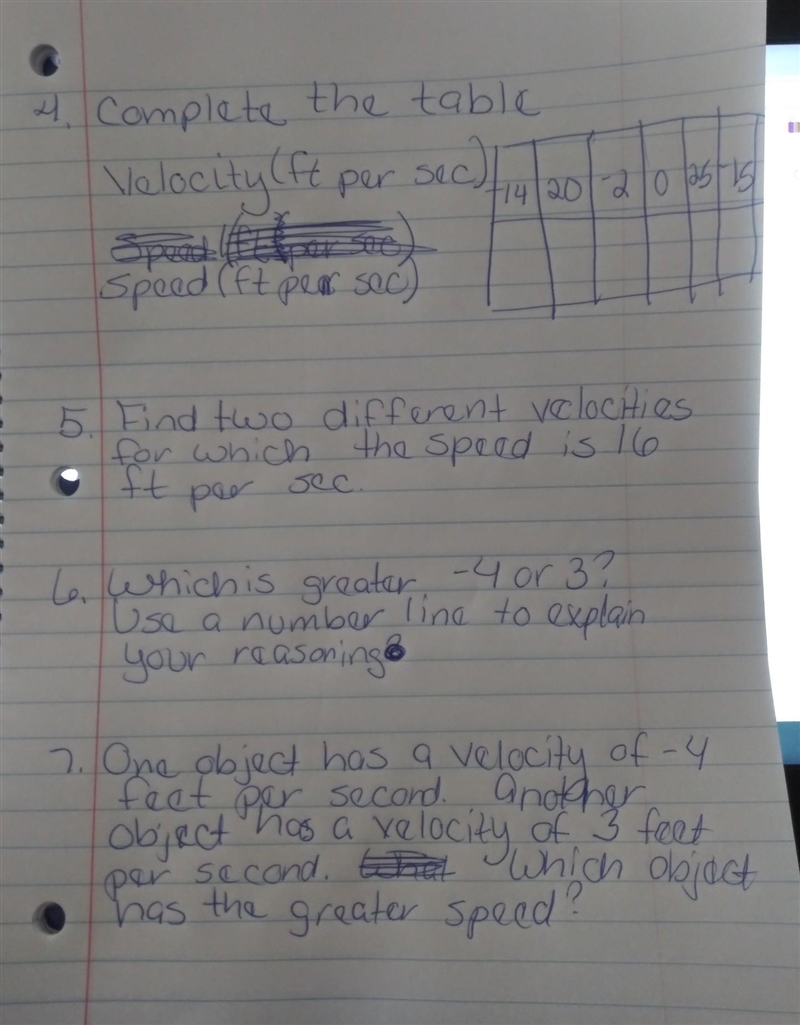 4. Complete the table
Velocity (ft per sec) -14 20 -2 0 25 -15
Speed (ft per sec)
5. Find two different velocities
for which the speed is 16
ft per sec.
6. Which is greater -4 or 3?
Use a number line to explain
your reasoning
7. One object has a velocity of -4
feet per second. Another
object has a velocity of 3 feet
per second. Which object
has the greater speed?